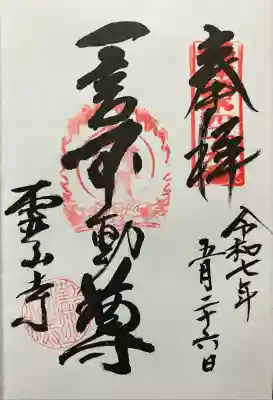 奉拝
令和七年
五月二十六日
一言不動尊
霊山寺